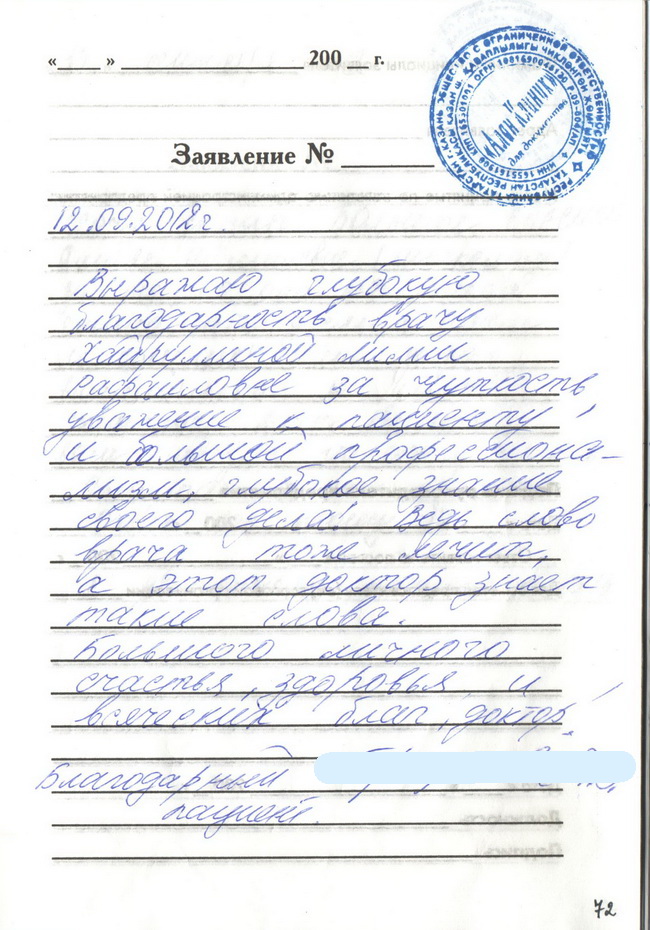 « ____ » ______________ 200 __ г.
ОБЩЕСТВО С ОГРАНИЧЕННОЙ ОТВЕТСТВЕННОСТЬЮ
ОГРН 1081690048130
ИНН 1655161908 КПП 165501001
«Алан Клиник»
для документов
Заявление № ________
12.09.2012 г.
Выражаю глубокую
благодарность врачу
Хайруллиной Лилии
Рафаиловне за чуткость,
уважение к пациенту
и большой профессиона-
лизм, глубокое знание
своего дела! Ведь слово
врача тоже лечит,
а этот доктор знает
такие слова.
Большого личного
счастья, здоровья, и
всяческих благ, доктор!
Благодарный
пациент.
72